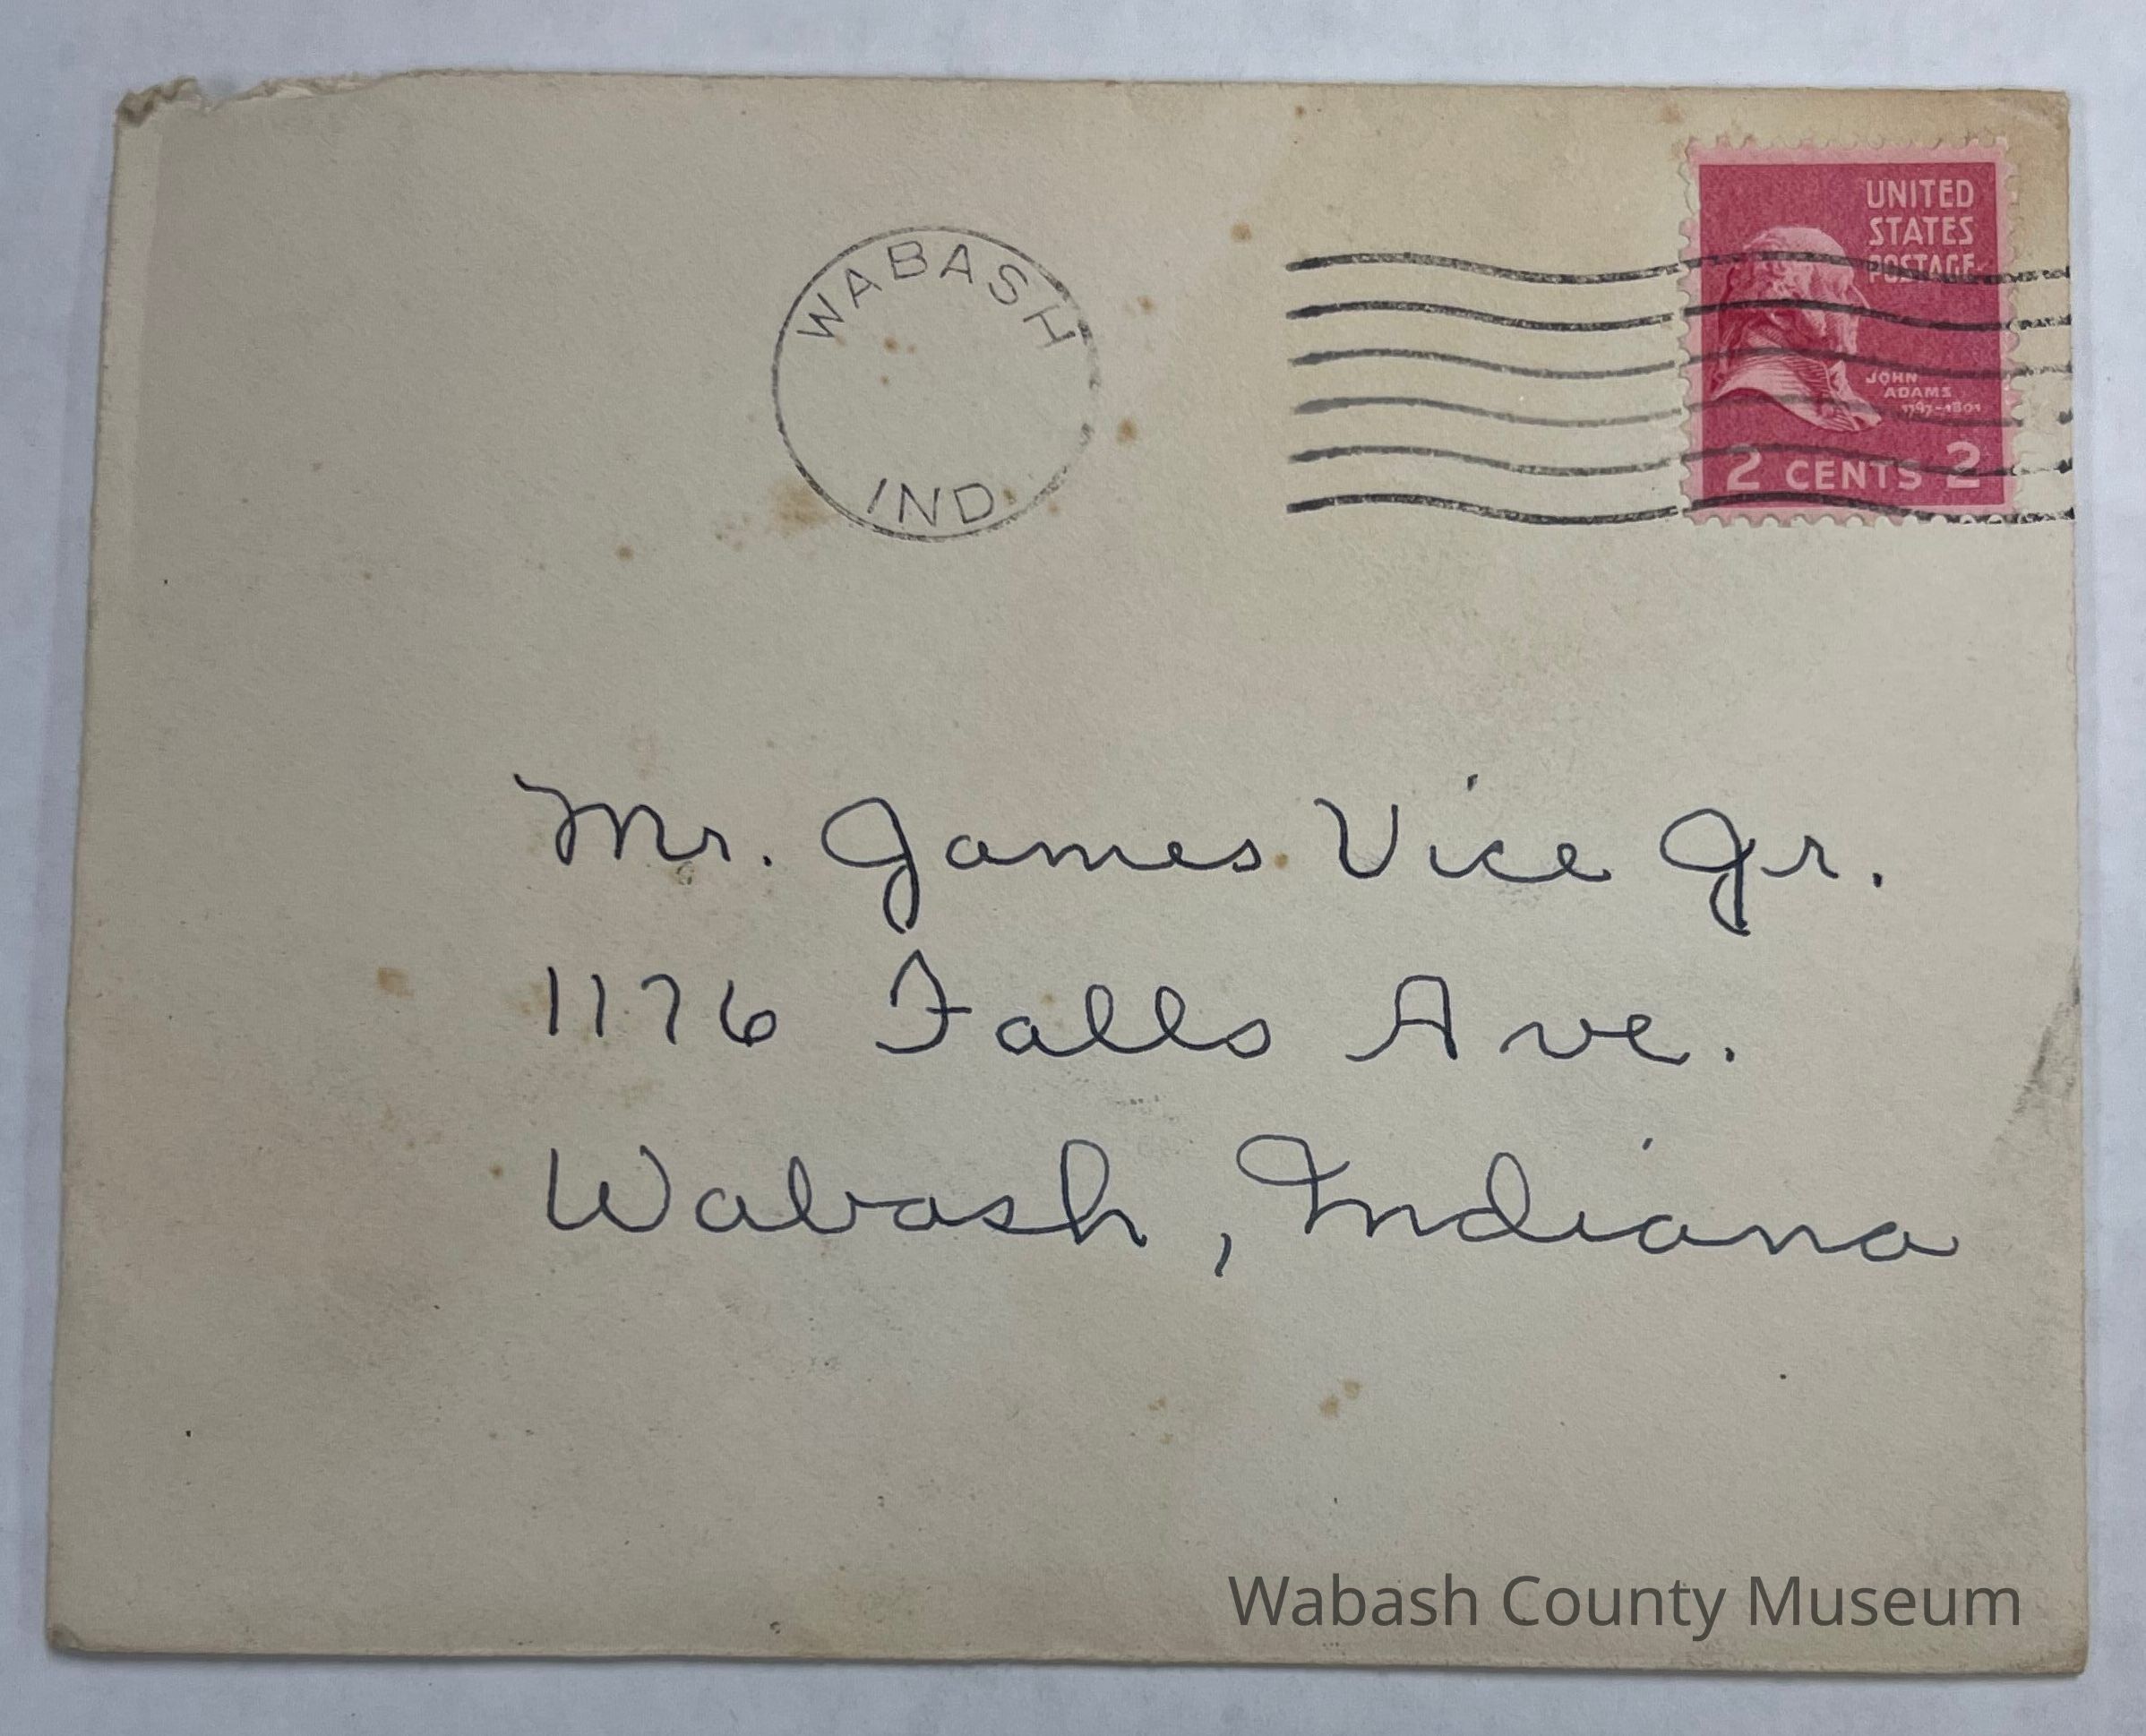 WABASH
IND.
UNITED
STATES
POSTAGE
JOHN
ADAMS
1797-1801
2 CENTS 2
Mr. James Vice Jr.
1176 Falls Ave.
Wabash, Indiana
Wabash County Museum